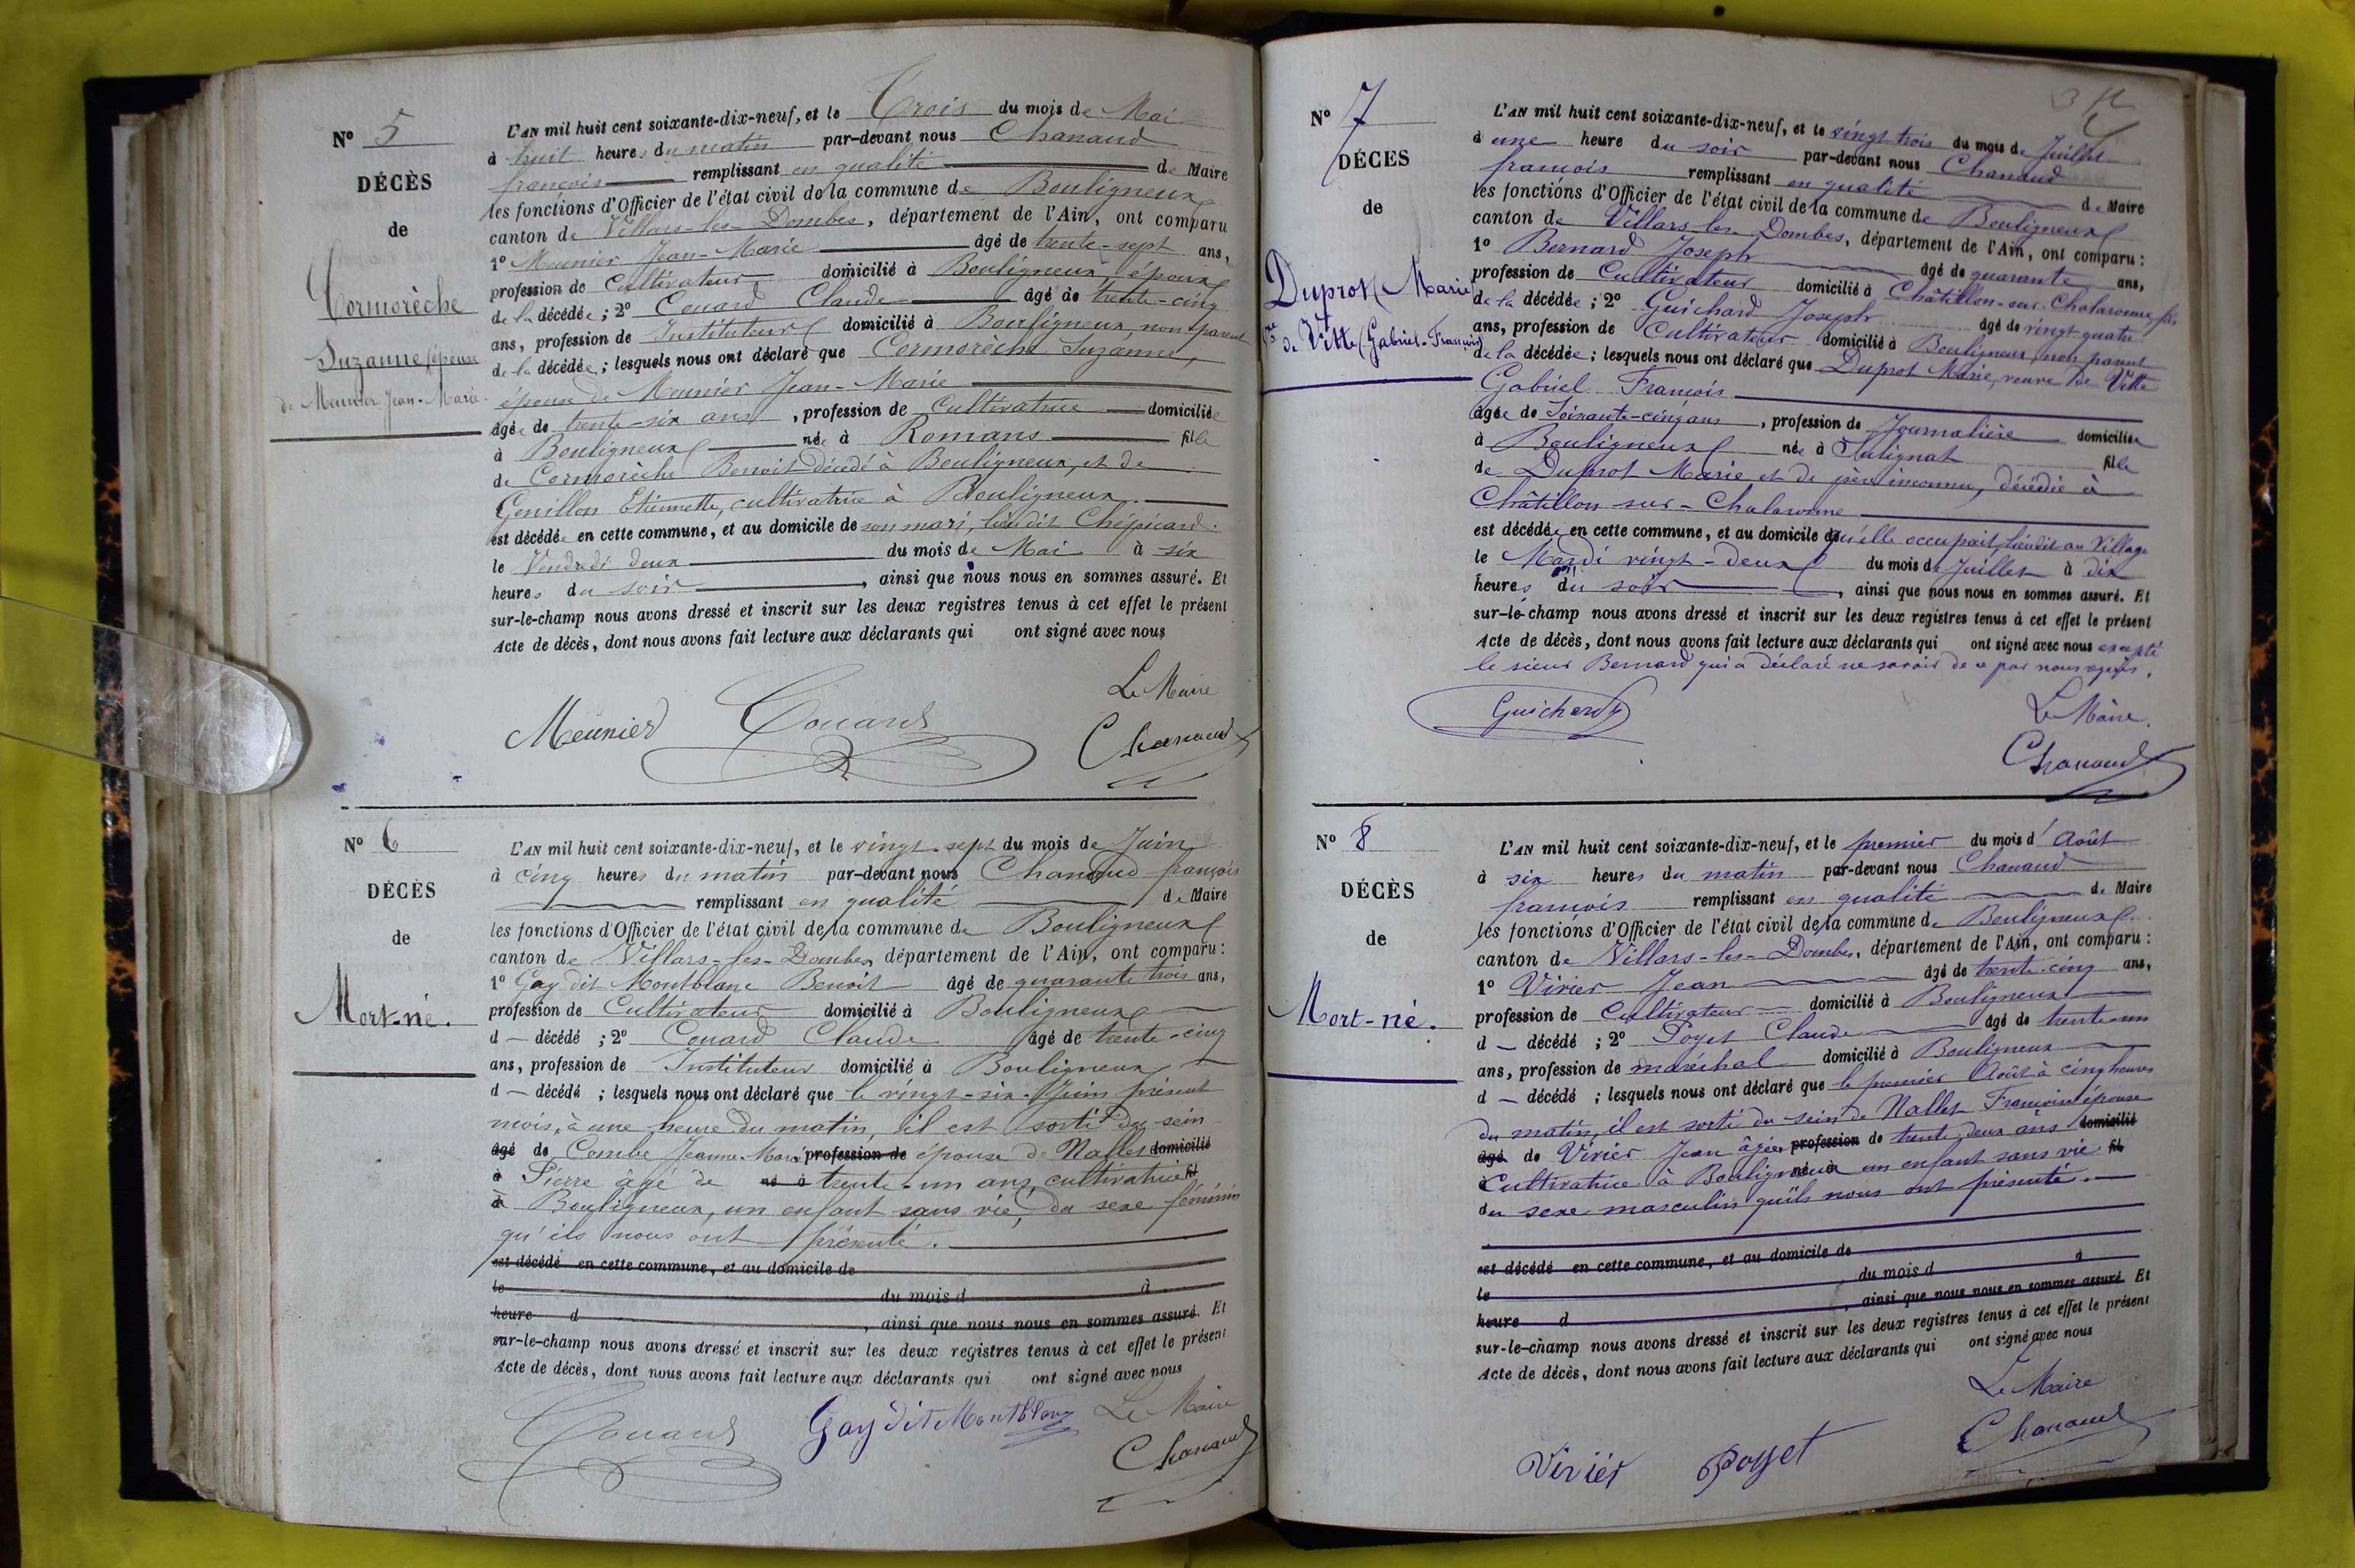 Nº 5
DÉCÈS
de
Cormorèche
Suzanne, épouse
de Meunier Jean-Marie.
L'AN mil huit cent soixante-dix-neuf, et le Trois du mois de Mai
à huit heures du matin par-devant nous Chanaud
françois remplissant en qualité de Maire
les fonctions d'Officier de l'état civil de la commune de Bouligneux
canton de Villars-les-Dombes, département de l'Ain, ont comparu
1º Meunier Jean-Marie âgé de trente-sept ans,
profession de Cultivateur domicilié à Bouligneux, époux
de la décédée ; 2º Couard Claude âgé de trente-cinq
ans, profession de Instituteur domicilié à Bouligneux, non parent
de la décédée ; lesquels nous ont déclaré que Cormorèche Suzanne,
épouse de Meunier Jean-Marie
âgée de trente-six ans, profession de Cultivatrice domiciliée
à Bouligneux née à Romans fille
de Cormorèche Benoit décédé à Bouligneux, et de
Genillon Etiennette, cultivatrice à Bouligneux.
est décédée en cette commune, et au domicile de son mari, lieu dit Chépicard.
le Vendredi deux du mois de Mai à six
heures du soir, ainsi que nous nous en sommes assuré. Et
sur-le-champ nous avons dressé et inscrit sur les deux registres tenus à cet effet le présent
Acte de décès, dont nous avons fait lecture aux déclarants qui ont signé avec nous
Le Maire
Meunier Couard Chanaud
Nº 6
DÉCÈS
de
Mort-né.
L'AN mil huit cent soixante-dix-neuf, et le vingt-sept du mois de Juin
à cinq heures du matin par-devant nous Chanaud françois
remplissant en qualité de Maire
les fonctions d'Officier de l'état civil de la commune de Bouligneux
canton de Villars-les-Dombes, département de l'Ain, ont comparu :
1º Gay dit Montblanc Benoit âgé de quarante trois ans,
profession de Cultivateur domicilié à Bouligneux
d — décédé ; 2º Couard Claude âgé de trente-cinq
ans, profession de Instituteur domicilié à Bouligneux
d — décédé ; lesquels nous ont déclaré que le vingt-six Juin présent
mois, à une heure du matin, il est sorti du sein
âgé de Combe Jeanne-Marie profession de épouse de Nallet domicilié
à Pierre âgé de né à trente-un ans, cultivatrice fil
à Bouligneux, un enfant sans vie, du sexe féminin
qu'ils nous ont présenté.
est décédé en cette commune, et au domicile de
le du mois d à
heure d , ainsi que nous nous en sommes assuré. Et
sur-le-champ nous avons dressé et inscrit sur les deux registres tenus à cet effet le présent
Acte de décès, dont nous avons fait lecture aux déclarants qui ont signé avec nous
Couard Gay dit Montblanc Le Maire
Chanaud
Nº 7
DÉCÈS
de
Duprot (Marie)
de Vitte (Gabriel-François)
L'AN mil huit cent soixante-dix-neuf, et le vingt trois du mois de Juillet
à une heure du soir par-devant nous Chanaud
françois remplissant en qualité de Maire
les fonctions d'Officier de l'état civil de la commune de Bouligneux
canton de Villars-les-Dombes, département de l'Ain, ont comparu :
1º Bernard Joseph âgé de quarante ans,
profession de Cultivateur domicilié à Châtillon-sur-Chalaronne fils
de la décédée ; 2º Guichard Joseph âgé de vingt quatre
ans, profession de Cultivateur domicilié à Bouligneux, non parent
de la décédée ; lesquels nous ont déclaré que Duprot Marie, veuve de Vitte
Gabriel François
âgée de Soixante-cinq ans, profession de Journalière domiciliée
à Bouligneux née à Sulignat fille
de Duprot Marie et de père inconnu, décédée à
Châtillon-sur-Chalaronne
est décédée en cette commune, et au domicile qu'elle occupait, lieudit au Village
le Mardi vingt-deux du mois de Juillet à dix
heures du soir, ainsi que nous nous en sommes assuré. Et
sur-le-champ nous avons dressé et inscrit sur les deux registres tenus à cet effet le présent
Acte de décès, dont nous avons fait lecture aux déclarants qui ont signé avec nous excepté
le sieur Bernard qui a déclaré ne savoir de ce par nous requis.
Guichard Le Maire.
Chanaud
Nº 8
DÉCÈS
de
Mort-né.
L'AN mil huit cent soixante-dix-neuf, et le premier du mois d'Août
à six heures du matin par-devant nous Chanaud
françois remplissant en qualité de Maire
les fonctions d'Officier de l'état civil de la commune de Bouligneux
canton de Villars-les-Dombes, département de l'Ain, ont comparu :
1º Vivier Jean âgé de trente-cinq ans,
profession de Cultivateur domicilié à Bouligneux
d — décédé ; 2º Poyet Claude âgé de trente-un
ans, profession de maréchal domicilié à Bouligneux
d — décédé ; lesquels nous ont déclaré que le premier Août à cinq heures
du matin, il est sorti du sein de Nallet Françoise épouse
âgé de Vivier Jean âgée profession de trente deux ans domicilié
Cultivatrice à Bouligneux né à un enfant sans vie fil
du sexe masculin qu'ils nous ont présenté.
est décédé en cette commune, et au domicile de
le du mois d à
heure d , ainsi que nous nous en sommes assuré. Et
sur-le-champ nous avons dressé et inscrit sur les deux registres tenus à cet effet le présent
Acte de décès, dont nous avons fait lecture aux déclarants qui ont signé avec nous
Le Maire
Vivier Poyet Chanaud